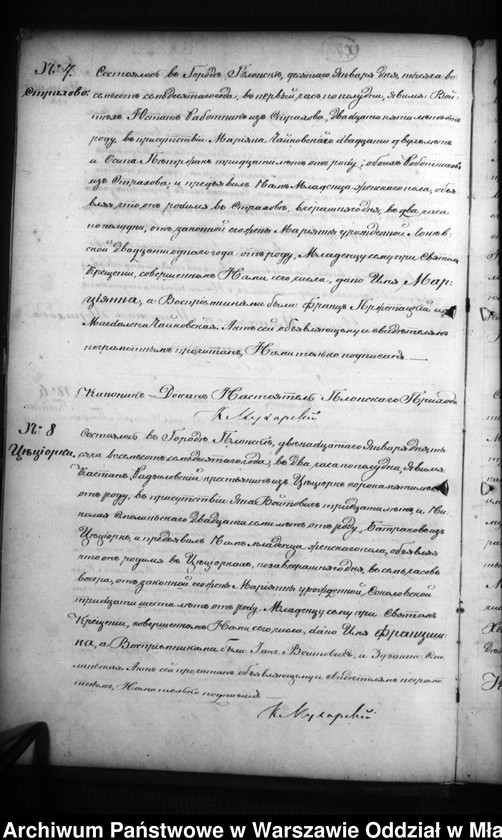 № 7
Страхово.
Состоялось въ Городѣ Плонскѣ, десятаго Января дня, тысяча во-
семьсотъ семьдесятаго года, въ первый часъ пополудни, явился Вой-
тѣхъ Юстатъ Работникъ изъ Страхова, Двадцати пяти лѣтъ отъ
роду, въ присутствіи Маріяна Чайковскаго двадцати двухъ лѣтъ
и Осипа тридцати лѣтъ отъ роду, обоихъ Работниковъ
изъ Страхова, и предъявилъ Намъ Младенца женскаго пола, объя-
вляя что онъ родился въ Страховѣ, вчерашняго дня, въ два часа
пополудни, отъ законной его жены Маріянны урожденной
ской двадцати одного года отъ роду. Младенцу сему при Святомъ
Крещеніи, совершенномъ Нами сего числа, дано Имя Мар-
ціянна, а Воспріемниками были: Францъ и
Магдалена Чайковская. Актъ сей объявляющему и свидѣтелямъ
неграмотнымъ прочитанъ, Нами только подписанъ
Каноникъ Деканъ Настоятель Плонскаго Прихода
К. Мухарскій
№ 8
Цѣціорки.
Состоялось въ Городѣ Плонскѣ, двѣнадцатаго Января дня, ты-
сяча восемьсотъ семьдесятаго года, въ Два часа пополудни, явился
Каетанъ Радзиловскій крестьянинъ изъ Цѣціорокъ сорока пяти лѣтъ
отъ роду, въ присутствіи Яна Войтовичъ тридцати лѣтъ, и Ни-
колая Смолинскаго Двадцати семи лѣтъ отъ роду, Батраковъ изъ
Цѣціорокъ, и предъявилъ Намъ младенца женскаго пола, объявляя
что онъ родился въ Цѣціоркахъ, позавчерашняго дня, въ семь часовъ
вечера, отъ законной его жены Маріянны урожденной Соколовской
тридцати шести лѣтъ отъ роду. Младенцу сему при Святомъ
Крещеніи, совершенномъ Нами сего числа, дано Имя Францишка,
на, а Воспріемниками были: Янъ Войтовичъ, и Зузанна
Актъ сей прочитанъ объявляющему и свидѣтелямъ неграмо-
тнымъ, Нами только подписанъ
К. Мухарскій
Archiwum Państwowe w Warszawie Oddział w Mła